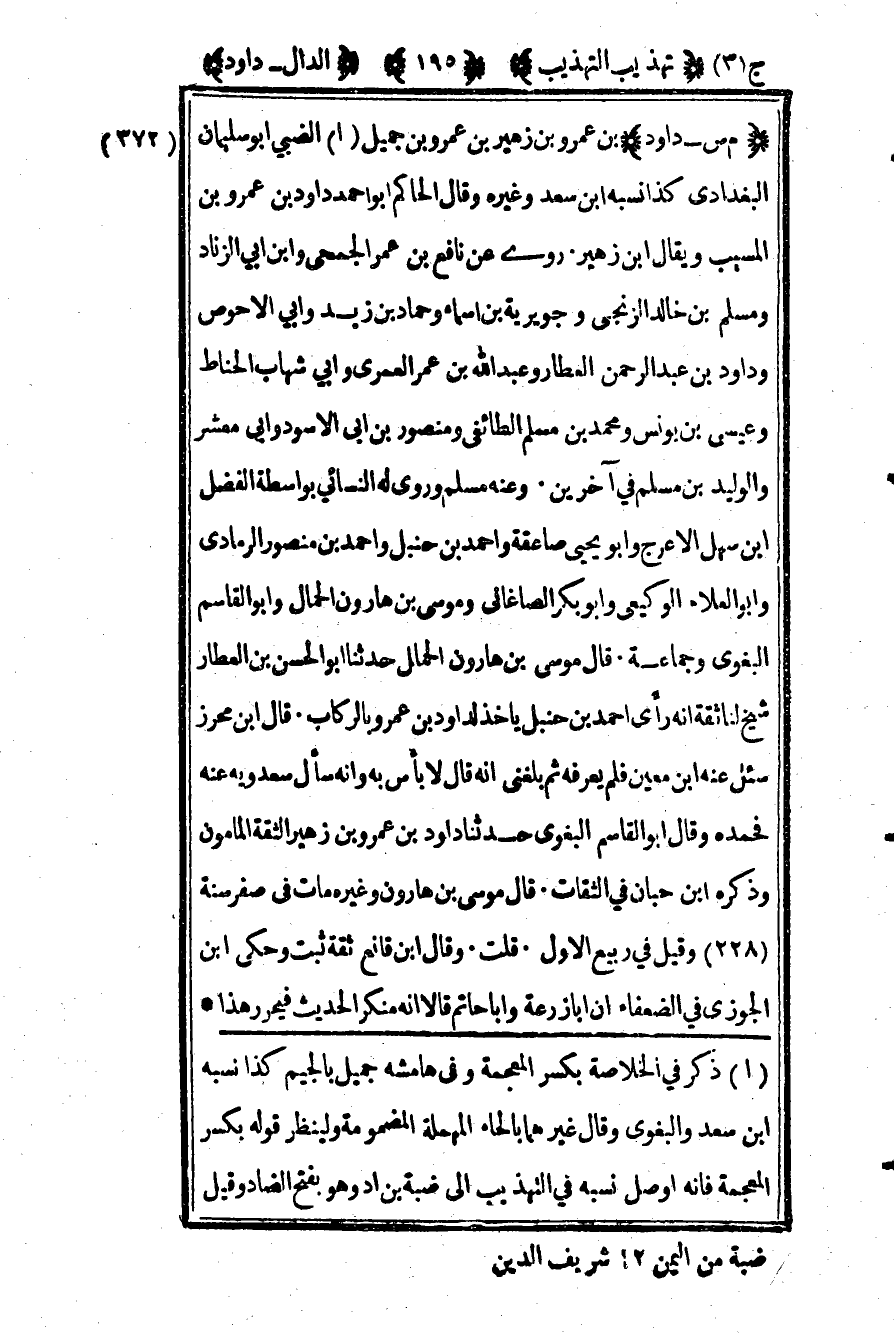 ج(٣) ﴿ تهذيب التهذيب ﴾ ﴿ ١٩٥ ﴾ ﴿ الدال ـ داود ﴾
﴿ م س ـ داود ﴾ بن عمرو بن زهير بن عمرو بن جميل (١) الضبي ابو سليمان (٣٧٢)
البغدادى كذا نسبه ابن سعد وغيره وقال الحاكم ابو احمد داود بن عمرو بن
المسيب ويقال ابن زهير. روے عن نافع بن عمر الجمحى وابن ابي الزناد
ومسلم بن خالد الزنجى و جويرية بن اسماء وحماد بن زيد وابي الاحوص
وداود بن عبد الرحمن العطار وعبد الله بن عمر العمرى وابي شهاب الحناط
وعيسى بن يونس ومحمد بن مسلم الطائفى ومنصور بن ابى الاسود وابى معشر
والوليد بن مسلم في آخرين. وعنه مسلم وروى له النسائي بواسطة الفضل
ابن سهل الاعرج وابو يحيى صاعقة واحمد بن حنبل واحمد بن منصور الرمادى
وابو العلاء الوكيعى وابو بكر الصاغانى وموسى بن هارون الحمال وابو القاسم
البغوى وجماعة. قال موسى بن هارون الحمال حدثنا ابو الحسن بن العطار
شيخ لنا ثقة انه رأى احمد بن حنبل ياخذ لداود بن عمرو بالركاب. قال ابن محرز
سئل عنه ابن معين فلم يعرفه ثم بلغنى انه قال لا بأس به وانه سأل سعدويه عنه
فحمده وقال ابو القاسم البغوى حدثنا داود بن عمرو بن زهير الثقة المامون
وذكره ابن حبان في الثقات. قال موسى بن هارون وغيره مات فى صفر سنة
(٢٢٨) وقيل في ربيع الاول. قلت. وقال ابن قانع ثقة ثبت وحكى ابن
الجوزى في الضعفاء ان ابا زرعة وابا حاتم قالا انه منكر الحديث فيحرر هذا *
(١) ذكر في الخلاصة بكسر المعجمة و فى هامشه جميل بالجيم كذا نسبه
ابن سعد والبغوى وقال غيرهما بالحاء المهملة المضمومة ولينظر قوله بكسر
المعجمة فانه اوصل نسبه في التهذيب الى ضبة بن اد وهو بفتح الضاد وقيل
ضبة من اليمن ١٢ شريف الدين